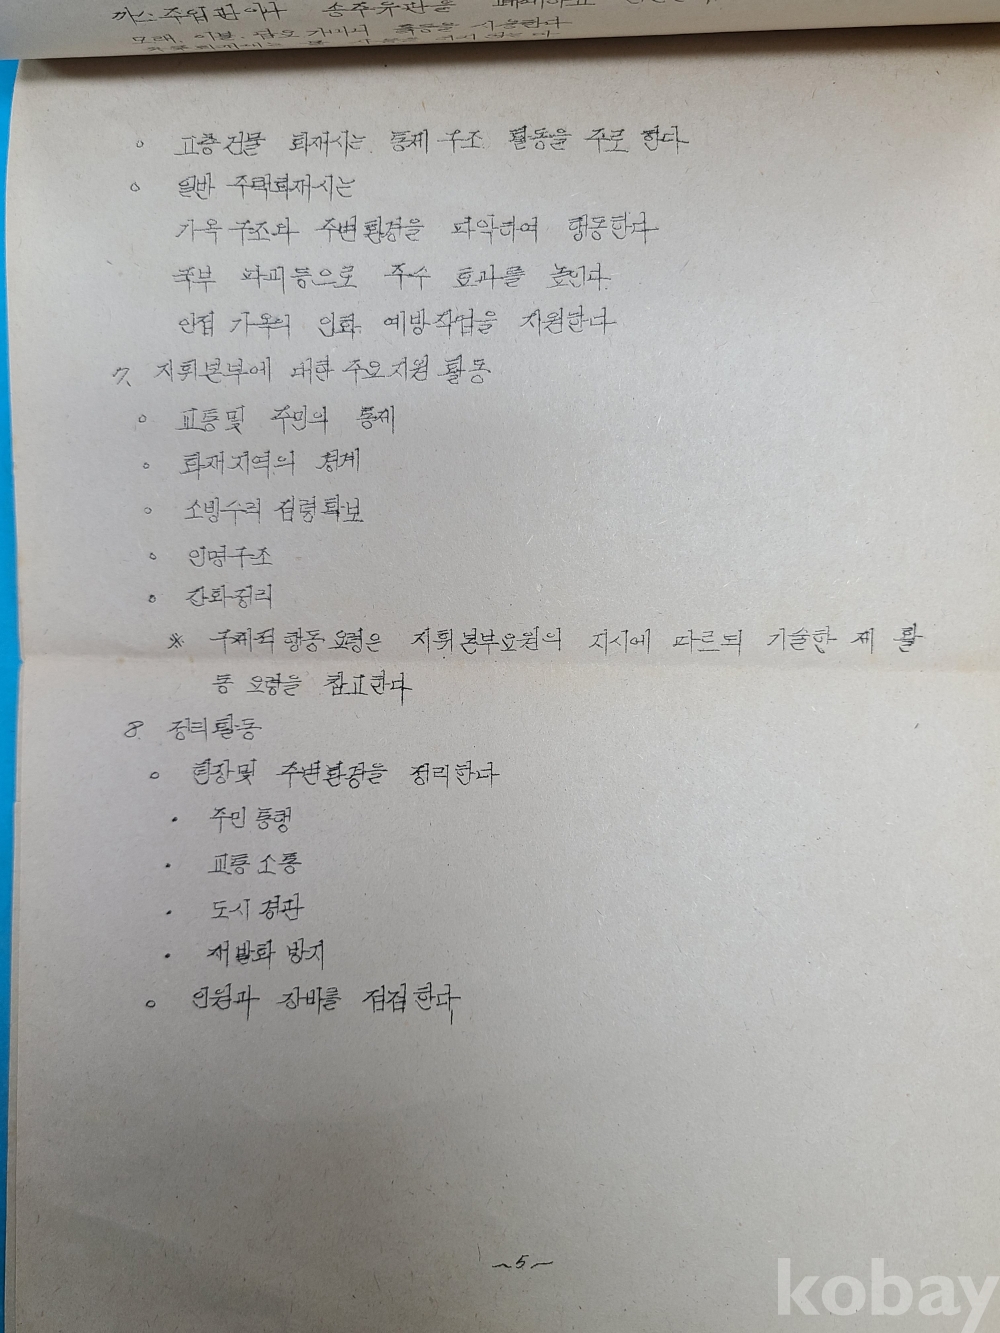 까스 주입관이나 송주유관을 폐쇄하고
모래, 이불, 담요, 가마니 등을 사용한다
ο 고층건물 화재시는 통제 구조 활동을 주로 한다
ο 일반 주택화재시는
가옥구조와 주변환경을 파악하여 행동한다
국부 파괴등으로 주수 효과를 높인다
인접 가옥의 인화 예방작업을 지원한다
7. 지휘본부에 대한 주요지원 활동
ο 교통및 주민의 통제
ο 화재지역의 경계
ο 소방수리 점령확보
ο 인명구조
ο 잔화정리
※ 구체적 행동 요령은 지휘본부요원의 지시에 따르되 기술한 제 활
동 요령을 참고한다
8. 정리활동
ο 현장및 주변환경을 정리한다
· 주민 통행
· 교통 소통
· 도시 경관
· 재발화 방지
ο 인원과 장비를 점검한다
~5~
kobay